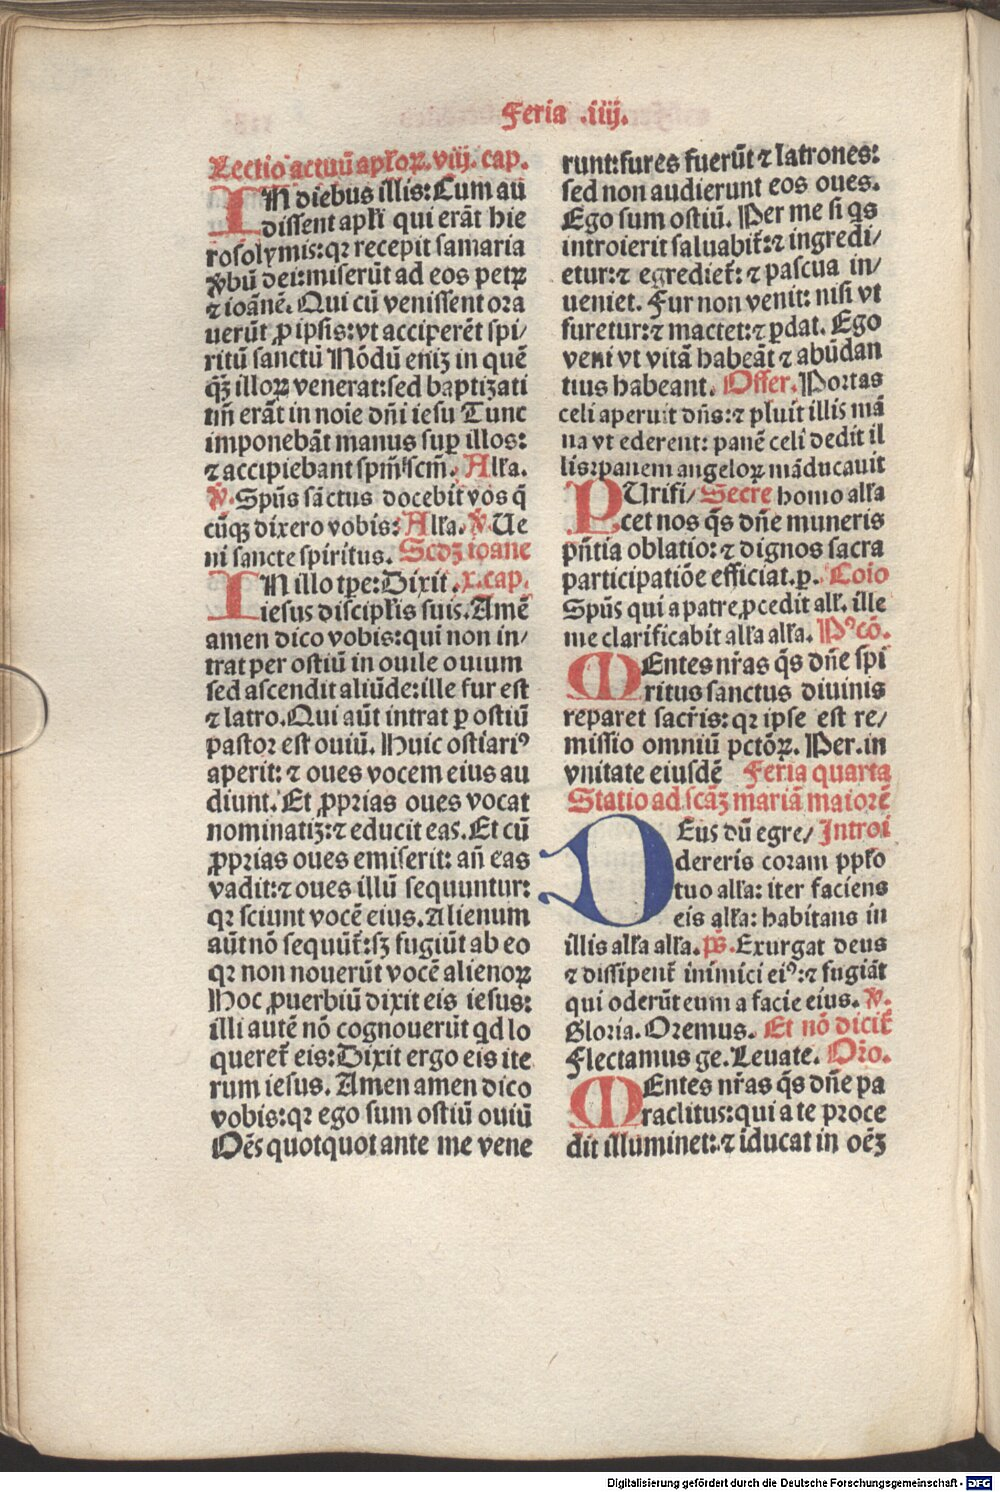 Feria .iiij.
Lectio actuū apl̄oꝝ. viij. cap.
IN diebus illis: Cum au
dissent apl̄i qui erāt hie
rosolymis: qꝛ recepit samaria
v̄bū dei: miserūt ad eos petrꝫ
⁊ ioānē. Qui cū venissent ora
uerūt ꝓ ipsis: vt acciperēt spi/
ritū sanctū Nōdū eniꝫ in quē
q̄ꝫ illoꝝ venerat: sed baptizati
tm̄ erāt in noīe dn̄i iesu Tunc
imponebāt manus suꝑ illos:
⁊ accipiebant spm̄ scm̄. Alľa.
v̄. Spūs sāctus docebit vos q̄
cūqꝫ dixero vobis: Alľa. v̄. Ue
ni sancte spiritus. Scd̄ꝫ ioane
IN illo tꝑe: Dixit .x. cap.
iesus discipľis suis. Amē
amen dico vobis: qui non in/
trat per ostiū in ouile ouium
sed ascendit aliūde: ille fur est
⁊ latro. Qui aūt intrat ꝑ ostiū
pastor est ouiū. Huic ostiariꝰ
aperit: ⁊ oues vocem eius au
diunt. Et ꝓprias oues vocat
nominatiꝫ: ⁊ educit eas. Et cū
ꝓprias oues emiserit: an̄ eas
vadit: ⁊ oues illū sequuntur:
qꝛ sciunt vocē eius. Alienum
aūt nō sequūt̄: sꝫ fugiūt ab eo
qꝛ non nouerūt vocē alienoꝝ
Hoc ꝓuerbiū dixit eis iesus:
illi autē nō cognouerūt qd lo
queret̄ eis: Dixit ergo eis ite
rum iesus. Amen amen dico
vobis: qꝛ ego sum ostiū ouiū
Oēs quotquot ante me vene
runt: fures fuerūt ⁊ latrones:
sed non audierunt eos oues.
Ego sum ostiū. Per me si q̄s
introierit saluabit̄: ⁊ ingredi/
etur: ⁊ egrediet̄: ⁊ pascua in/
ueniet. Fur non venit: nisi vt
furetur: ⁊ mactet: ⁊ ꝑdat. Ego
veni vt vitā habeāt ⁊ abūdan
tius habeant. Offer. Portas
celi aperuit dn̄s: ⁊ pluit illis mā
na vt ederent: panē celi dedit il
lis: panem angeloꝝ māducauit
PUrifi/ Secre homo alľa
cet nos q̄s dn̄e muneris
pn̄tia oblatio: ⁊ dignos sacra
participatiōe efficiat. ꝑ. Coīo
Spūs qui a patre ꝓcedit alľ. ille
me clarificabit alľa alľa. Pꝰcō.
MEntes nr̄as q̄s dn̄e spi
ritus sanctus diuinis
reparet sacr̄is: qꝛ ipse est re/
missio omniū pctōꝝ. Per. in
vnitate eiusdē Feria quarta
Statio ad scāꝫ mariā maiorē
DEus dū egre/ Introi
dereris coram ppľo
tuo alľa: iter faciens
eis alľa: habitans in
illis alľa alľa. p̄s. Exurgat deus
⁊ dissipent̄ inimici eiꝰ: ⁊ fugiāt
qui oderūt eum a facie eius. v̄.
Gloria. Oremus. Et nō dicit̄
Flectamus ge. Leuate. Or̄o.
MEntes nr̄as q̄s dn̄e pa
raclitus: qui a te proce
dit illuminet: ⁊ īducat in oēꝫ
Digitalisierung gefördert durch die Deutsche Forschungsgemeinschaft - DFG